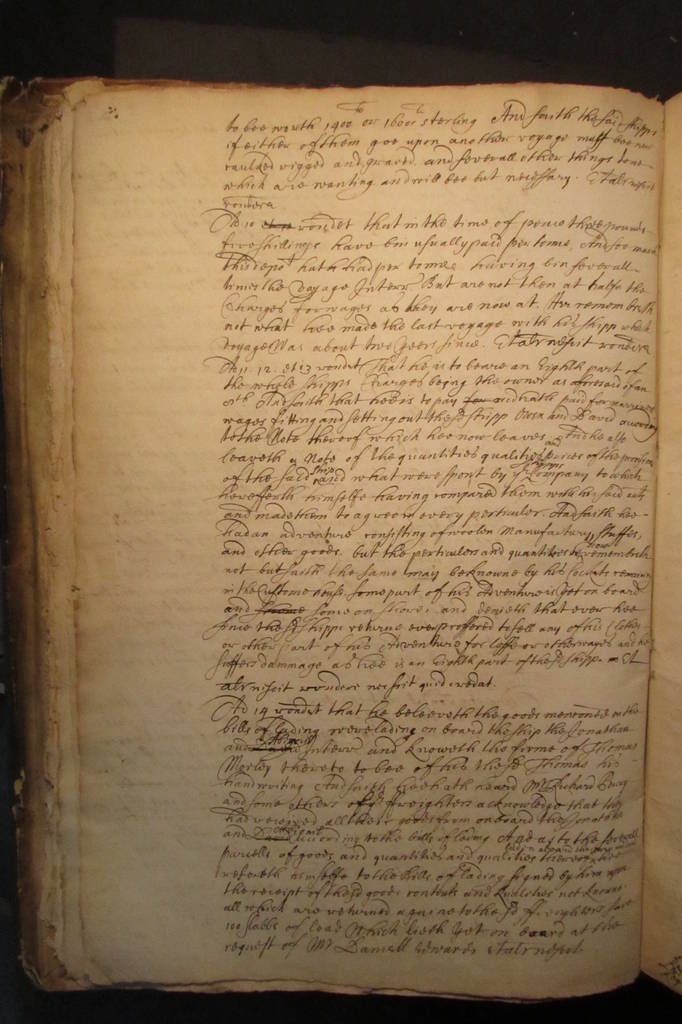 to bee worth 1400 or 1600li sterling And saith the said shipps
if either of them goe upon another voyage must bee new
caulked rigged and graved and severall other things done
which are wanting and will bee but necessary. Et alr nescit
respondere
Ad 10 respondet that in the time of peace three pounds
five shillings have bin usually paid per tonne, And soe much
this depot hath had per tonne having bin severall
times the voyage Interr But are not then at halfe the
Charges for wages as they are now at. Hee remembreth
not what hee made the last voyage with his shipp which
voyage was about two yeers since. Et alr nescit respondere
Ad 11. 12. et 13 respondet That he is to beare an Eighth part of
the whole shipps Charges being the owner as aforesaid of an
8th And saith that hee is to pay and hath paid for
wages fitting and setting out the sd shipp and David according
to the Note thereof which hee now leaves And he also
leaveth a Note of the quantities qualities and prices of the provisions
of the said ship and what were spent by ye Company to which
hee referreth himselfe having compared them with his said
and made them to agree in every perticuler. And saith hee
had an adventure consisting of woolen Manufactures, stuffes,
and other goods. but the perticulers and quantities hee now remembreth
not but saith the same may be knowne by his Cocquets
in the Custome house some part of his Adventure is yet on board
and some on shore and denieth that ever hee
since the sd shipps returne ever profered to sell any of his Clothes
or other part of his Adventure for losse or otherwayes and hee
suffers dammage as hee is an Eighth part of the sd shipp. Et
alr nescit respondere nescit quid credat.
Ad 14 respondet that he beleeveth the goods mencioned in the
bills of lading were laden on board the ship the Jonathan
and Interr and knoweth the firme of Thomas
Morley thereto to bee of his the sd Thomas his
handwriting And saith hee hath heard Mr Richard
and some others of ye freighters acknowledge that they
had received all their goods from on board the Jonathan
and according to the bills of lading And as to the severall
parcells of goods and quantities and qualities thereof hee
referreth himselfe to the Bills of lading signed by him upon
the receipt of the sd goods contents and Qualities not knowne
all which are returned againe to the sd ffreighters save
100 slabbs of lead which lieth yet on board at the
request of Mr Daniell Edwards Et alr nescit